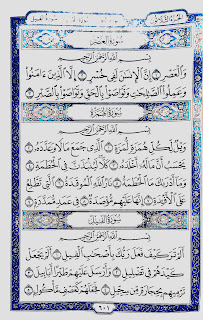 سُورَةُ العَصْرِ
بِسْمِ اللَّهِ الرَّحْمَٰنِ الرَّحِيمِ
وَالْعَصْرِ ۝١ إِنَّ الْإِنسَٰنَ لَفِى خُسْرٍ ۝٢ إِلَّا الَّذِينَ ءَامَنُوا
وَعَمِلُوا الصَّٰلِحَٰتِ وَتَوَاصَوْا بِالْحَقِّ وَتَوَاصَوْا بِالصَّبْرِ ۝٣
سُورَةُ الهُمَزَةِ
بِسْمِ اللَّهِ الرَّحْمَٰنِ الرَّحِيمِ
وَيْلٌ لِّكُلِّ هُمَزَةٍ لُّمَزَةٍ ۝١ الَّذِى جَمَعَ مَالًا وَعَدَّدَهُ ۝٢
يَحْسَبُ أَنَّ مَالَهُ أَخْلَدَهُ ۝٣ كَلَّا لَيُنبَذَنَّ فِى الْحُطَمَةِ ۝٤
وَمَا أَدْرَىٰكَ مَا الْحُطَمَةُ ۝٥ نَارُ اللَّهِ الْمُوقَدَةُ ۝٦ الَّتِى تَطَّلِعُ
عَلَى الْأَفْـِٔدَةِ ۝٧ إِنَّهَا عَلَيْهِم مُّؤْصَدَةٌ ۝٨ فِى عَمَدٍ مُّمَدَّدَةٍ ۝٩
سُورَةُ الفِيلِ
بِسْمِ اللَّهِ الرَّحْمَٰنِ الرَّحِيمِ
أَلَمْ تَرَ كَيْفَ فَعَلَ رَبُّكَ بِأَصْحَٰبِ الْفِيلِ ۝١ أَلَمْ يَجْعَلْ
كَيْدَهُمْ فِى تَضْلِيلٍ ۝٢ وَأَرْسَلَ عَلَيْهِمْ طَيْرًا أَبَابِيلَ ۝٣
تَرْمِيهِم بِحِجَارَةٍ مِّن سِجِّيلٍ ۝٤ فَجَعَلَهُمْ كَعَصْفٍ مَّأْكُولٍ ۝٥
٦٠١